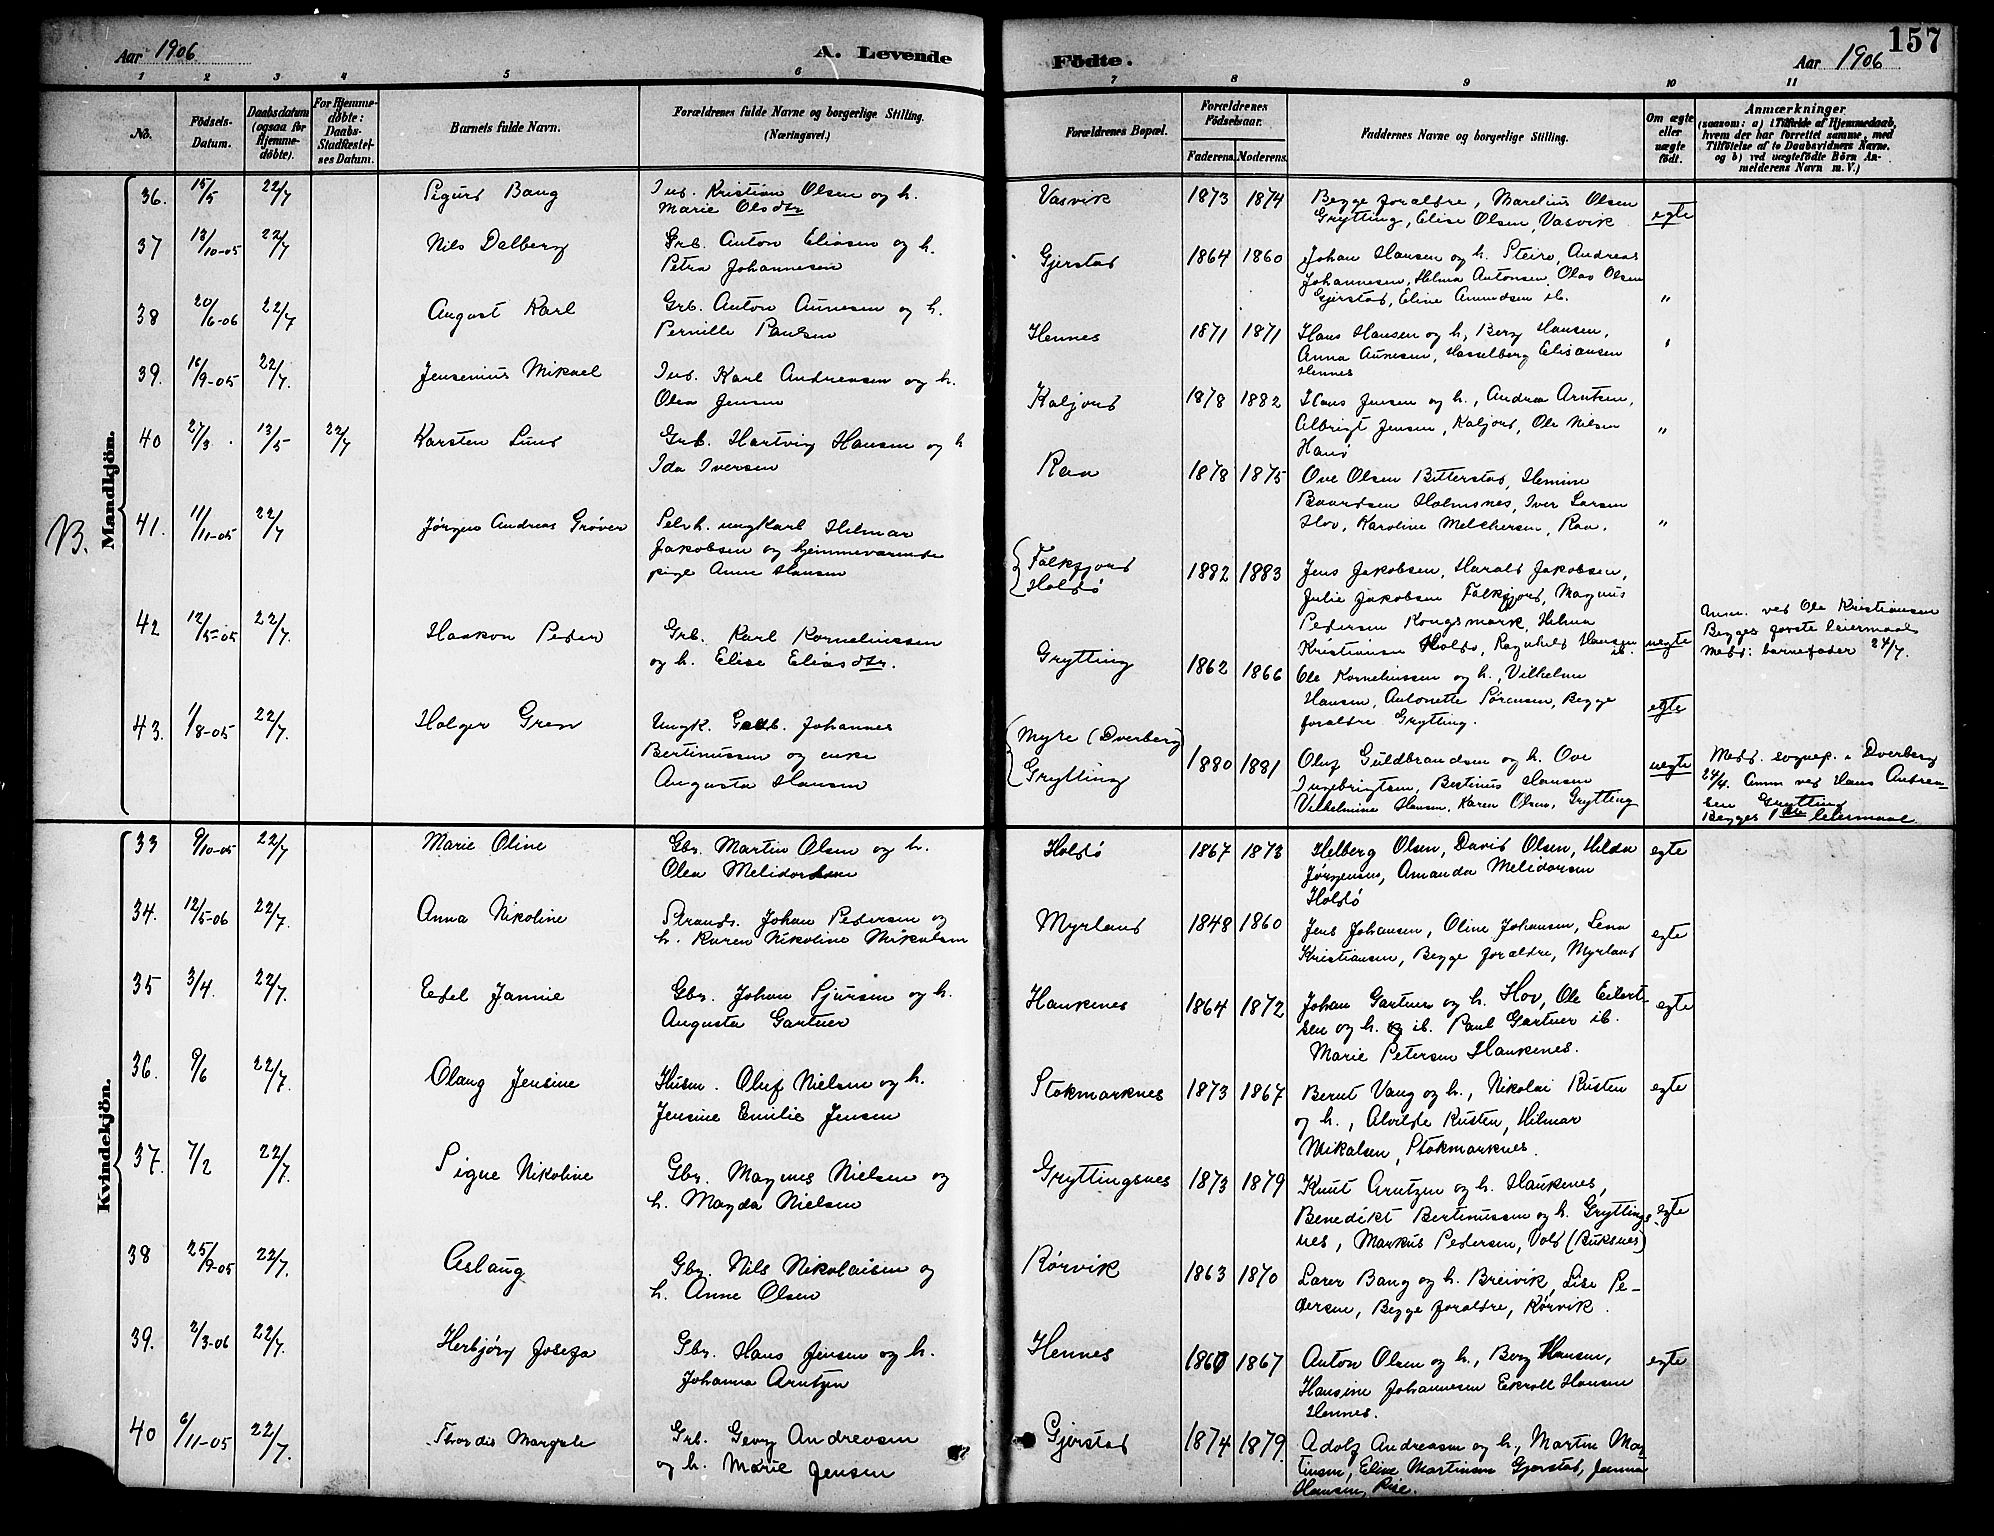 Aar 1906
A. Levende
Födte.
Aar 1906
157
1 2 3 4 5 6 7 8 9 10 11
No.
Födsels-
Datum.
Daabsdatum
(ogsaa for
Hjemme-
döbte).
For Hjemme-
döbte:
Daabs-
Stadfæstel-
ses Datum.
Barnets fulde Navn.
Forældrenes fulde Navne og borgerlige Stilling.
(Næringsvei.)
Forældrenes Bopæl.
Forældrenes
Födselsaar.
Faderens. Moderens.
Faddernes Navne og borgerlige Stilling.
Om ægte
eller
uægte
födt.
Anmærkninger
(saasom: a) i Tilfælde af Hjemmedaab,
hvem der har forrettet samme, med
Tilföielse af to Daabsvidners Navne.
og b) ved uægtefödte Börn An-
melderens Navn m. V.)
B.
Mandkjön.
36. 15/5 22/7 Sigurd Bang
Inds. Kristian Olsen og h.
Marie Olsdtr
Vasvik 1873 1874
Begge foraldre, Marelius Olsen
Grytting, Elise Olsen, Vasvik
egte
37 13/10-05 22/7 Nils Dalberg
Grb. Anton Eliasen og h.
Petra Johannesen
Gjerstad 1864 1860
Johan Hansen og h. Steiro, Andreas
Johannesen, Helma Antonsen, Olav Olsen
Gjerstad, Eline Amundsen ib.
"
38 20/6-06 22/7 August Karl
Grb. Anton Aunesen og h.
Pernille Paulsen
Hennes 1871 1871
Hans Hansen og h, Berg Hansen,
Anna Aunesen, Hasselberg Elisansen
Hennes
"
39. 16/9-05 22/7. Jensenius Mikael
Ind. Karl Andreasen og h.
Olea Jensen
Kaljord 1878 1882
Hans Jensen og h., Andrea Arntsen,
Albrigt Jensen, Kaljord, Ole Nilsen
Hanö
"
40 27/3. 13/5 22/7 Karsten Lund
Grb. Hartvig Hansen og h
Ida Iversen
Raa 1878 1875
Ove Olsen Bitterstad, Hemine
Baardsen Holmsnes, Iver Larsen
Hov, Karoline Melchersen, Raa.
"
41. 11/11-05 22/7 Jörgen Andreas Gröver
Selvh. ungkarl Hilmar
Jakobsen og hjemmevarende
pige Anne Hansen
Falkfjord
Holdö
1882 1883
Jens Jakobsen, Harald Jakobsen,
Julie Jakobsen Falkfjord, Magnus
Pedersen Kongsmark, Helma
Kristiansen Holdö, Ragnhild Hansen ib.
uegte
Anm. ved Ole Kristiansen
Begges förste leiermaal
Medd. barnefader 24/7.
42 12/5-05 22/7. Haakon Peder
Grb. Karl Kornelinssen
og h. Elise Eliasdtr.
Grytting 1862 1866
Ole Kornelinssen og h., Vilhelm
Hansen, Antonette Sörensen, Begge
foraldre Grytting.
egte
43. 1/8-05 22/7. Holger Gren
Ungk. Gaardb. Johannes
Bertinussen og enke
Augusta Hansen
Myre (Dverberg)
Grytting
1880 1881
Oluf Guldbrandsen og h. Ove
Ingebrigtsen, Bertinus Hansen
Vilhelmine Hansen, Karen Olsen, Grytting
uegte
Medd. sognep. i Dverberg
24/7. Anm ved Hans Andrea-
sen Grytting
Begges 1ste leiermaal
Kvindekjön.
33 9/10-05 22/7 Marie Oline
Gbr. Martin Olsen og h.
Olea Melidorsen
Holdö 1867 1873
Helberg Olsen, David Olsen, Hilda
Jörgensen, Amanda Melidorsen
Holdö
egte
34. 12/5-06 22/7. Anna Nikoline
Strands. Johan Pedersen og
h. Karen Nikoline Mikalsen
Myrland 1848 1860
Jens Johansen, Oline Johansen, Lena
Kristiansen, Begge foraldre, Myrland
egte
35 3/4. 22/7. Edel Jannie
Gbr. Johan Sjursen og h.
Augusta Gartner
Haukenes 1864 1872
Johan Gartner og h. Hov, Ole Eilert-
sen og h. ib. Paul Gartner ib.
Marie Petersen Haukenes.
egte
36. 9/6 22/7. Olaug Jensine
Husm. Oluf Nielsen og h.
Jensine Emilie Jensen
Stokmarknes 1873 1867
Bernt Vang og h., Nikolai Rusten
og h., Alvilde Rusten, Hilmar
Mikalsen, Stokmarknes.
egte
37. 7/2 22/7. Signe Nikoline
Gbr. Magnus Nielsen og
h. Magda Nielsen
Gryttingsnes 1873 1879
Knut Arntzen og h. Haukenes,
Benedikt Bertinussen og h. Gryttings-
nes, Markus Pedersen, Vold (Buksnes)
egte
38 25/9-05 22/7. Aslaug
Gbr. Nils Nikolaisen og
h. Anne Olsen
Rörvik 1863 1870
Larer Bang og h. Breivik, Lise Pe-
dersen, Begge foraldre, Rörvik.
39. 2/3-06 22/7. Herbjörg Josefa
Gbr. Hans Jensen og h.
Johanna Arntzen
Hennes 1860 1867
Anton Olsen og h., Berg Hansen,
Hansine Johannesen Ekroll Hansen
Hennes.
egte
40 6/11-05 22/7. Thordis Margrete
Grb. Georg Andreasen
og h. Marie Jensen
Gjerstad 1874 1879.
Adolf Andreasen og h., Martin Mar
tinsen, Eline Martinsen Gjerstad, Jenna
Hansen, Rise.